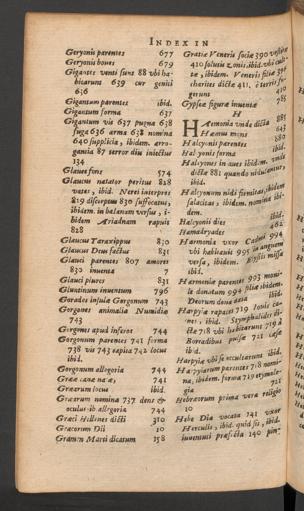 INDEX IN
Geryonis parentes 677
Geryonis boues 679
Gigantes venti sunt 88 vbi ha-
bitarunt 639 cur geniti
636
Gigantum parentes ibid.
Gigantum forma 637
Gigantum vis 637 pugna 638
fuga 636 arma 638 nomina
640 supplicia, ibidem. arro-
gantia 87 terror diis iniectus
134
Glauce fons 574
Glaucus natator peritus 828
vates, ibid. Nerei interpres
829 discerptus 830 suffocatus,
ibidem. in balænam versus, i-
bidem Ariadnam rapuit
828
Glaucus Taraxippus 830
Glaucus Deus factus 831
Glauci parentes 807 amores
830 inuenta 7
Glauci plures 831
Glutinum inuentum 796
Gorades insula Gorgonum 743
Gorgones animalia Numidiæ
743
Gorgones apud inferos 744
Gorgonum parentes 741 forma
738 vis 743 rapina 742 locus
ibid.
Gorgonum allegoria 744
Grææ canæ natæ, 741
Græarum locus ibid.
Græarum nomina 737 dens &
oculus ib. allegoria 744
Græci Hellenes dicti 310
Græcorum Dii 10
Gramen Marti dicatum 158
Gratiæ Veneris sociæ 390
410 solutis zonis, ibid.
ibidem. Veneris filiæ
charites dictæ 411,
410
Gypsea figuræ inuentæ 785
H
Hæmonia vnde dicta 885
Hæmus mons 643
Halcyonis parentes 880
Halcyonis forma ibid.
Halcyones in aues ibidem. vnde
dictæ 881 quando
ibid.
Halcyonum nidi ibidem
salacitas, ibidem. nomina ibi-
dem.
Halcyonii dies ibid.
Hamadryades 462
Harmonia vxor Cadmi 994
vbi habitauit 995 in anguem
versa, ibidem. missa
ibid.
Harmoniæ parentes 993
le donatum 994 ibidem.
Deorum dona ibid.
Harpyiæ rapaces 719 Iouis ca-
nes, ibid. Stymphalides di-
ctæ 718 vbi habitarunt 719 à
Boreadibus pulsæ 721 cæsæ
ibid.
Harpyiæ vbi se occultarunt ibid.
Harpyiarum parentes 718 nomi-
na, ibidem. forma 719 etymolo-
gia 721
Hebræorum prima vera religio
10
Hebe Dia vocata 141 vxor
Herculis, ibid. quid sit, ibid.
iuuentuti præfecta 140